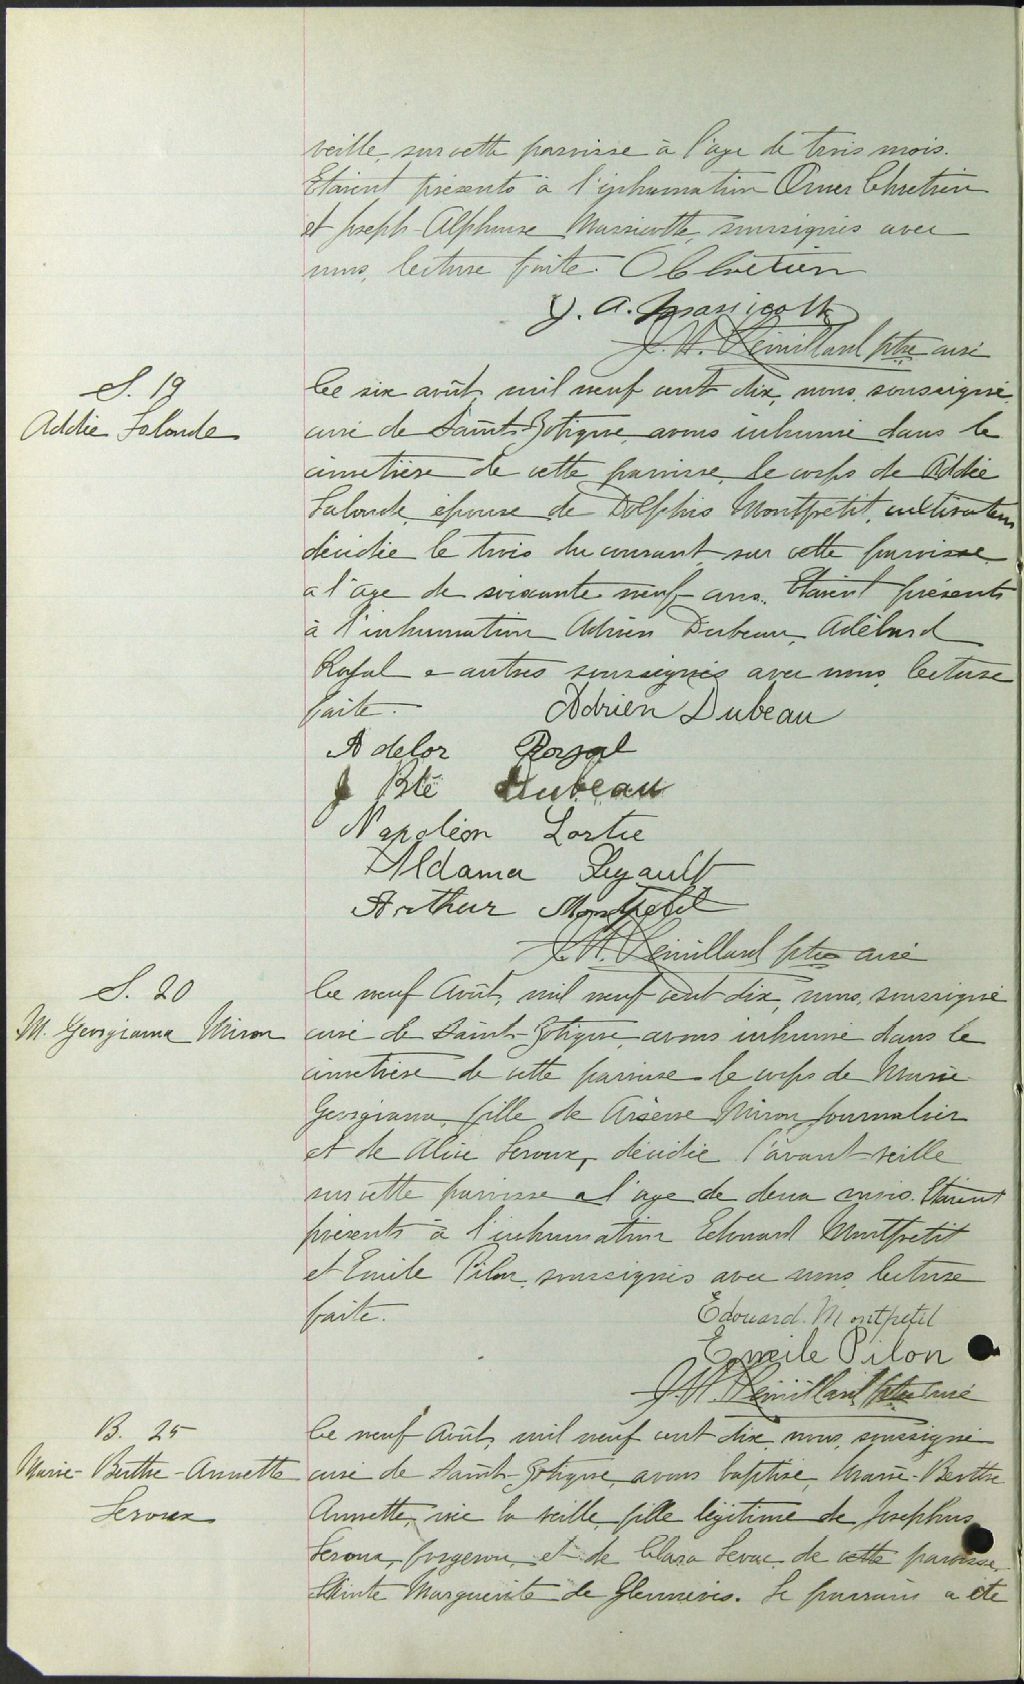 veille, sur cette paroisse à l'age de trois mois.
Etaient présents à l'inhumation Omer Chretien
et Joseph-Alphonse Massicotte, soussignés avec
nous, lecture faite. O Chretien
J. A. Massicotte
J. H. Remillard ptre curé
S. 19
Addie Lalonde
Ce six août, mil neuf cent dix, nous, soussigné,
curé de Saint-Zotique, avons inhumé dans le
cimetière de cette paroisse, le corps de Addie
Lalonde, épouse de Dolphis Montpetit, cultivateur
décédée le trois du courant, sur cette paroisse,
a l'age de soixante neuf ans. Etaient présents
à l'inhumation Adrien Dubeau, Adélard
Royal & autres soussignés avec nous, lecture
faite.
Adrien Dubeau
Adelor Royal
J Bte Dubeau
Napoléon Lortie
Aldama Legault
Arthur Montpetit
J. H. Remillard ptre curé
S. 20
M. Georgiana Miron
Ce neuf Août, mil neuf cent dix, nous, soussigné
curé de Saint-Zotique, avons inhumé dans le
cimetière de cette paroisse le corps de Marie
Georgiana, fille de Arsène Miron, journalier
et de Alice Leroux, décédée l'avant-veille
sur cette paroisse a l'age de deux mois. Etaient
présents à l'inhumation Edouard Montpetit
et Emile Pilon, soussignés avec nous, lecture
faite.
Edouard Montpetit
Emile Pilon
J. H. Remillard ptre curé
B. 25
Marie-Berthe-Annette
Leroux
Ce neuf Août, mil neuf cent dix, nous, soussigné
curé de Saint-Zotique, avons baptisé, Marie-Berthe
Annette, née la veille, fille légitime de Josephus
Leroux, forgeron, et de Clara Levac, de cette paroisse,
Sainte Marguerite de Glennevis. Le parrain a été